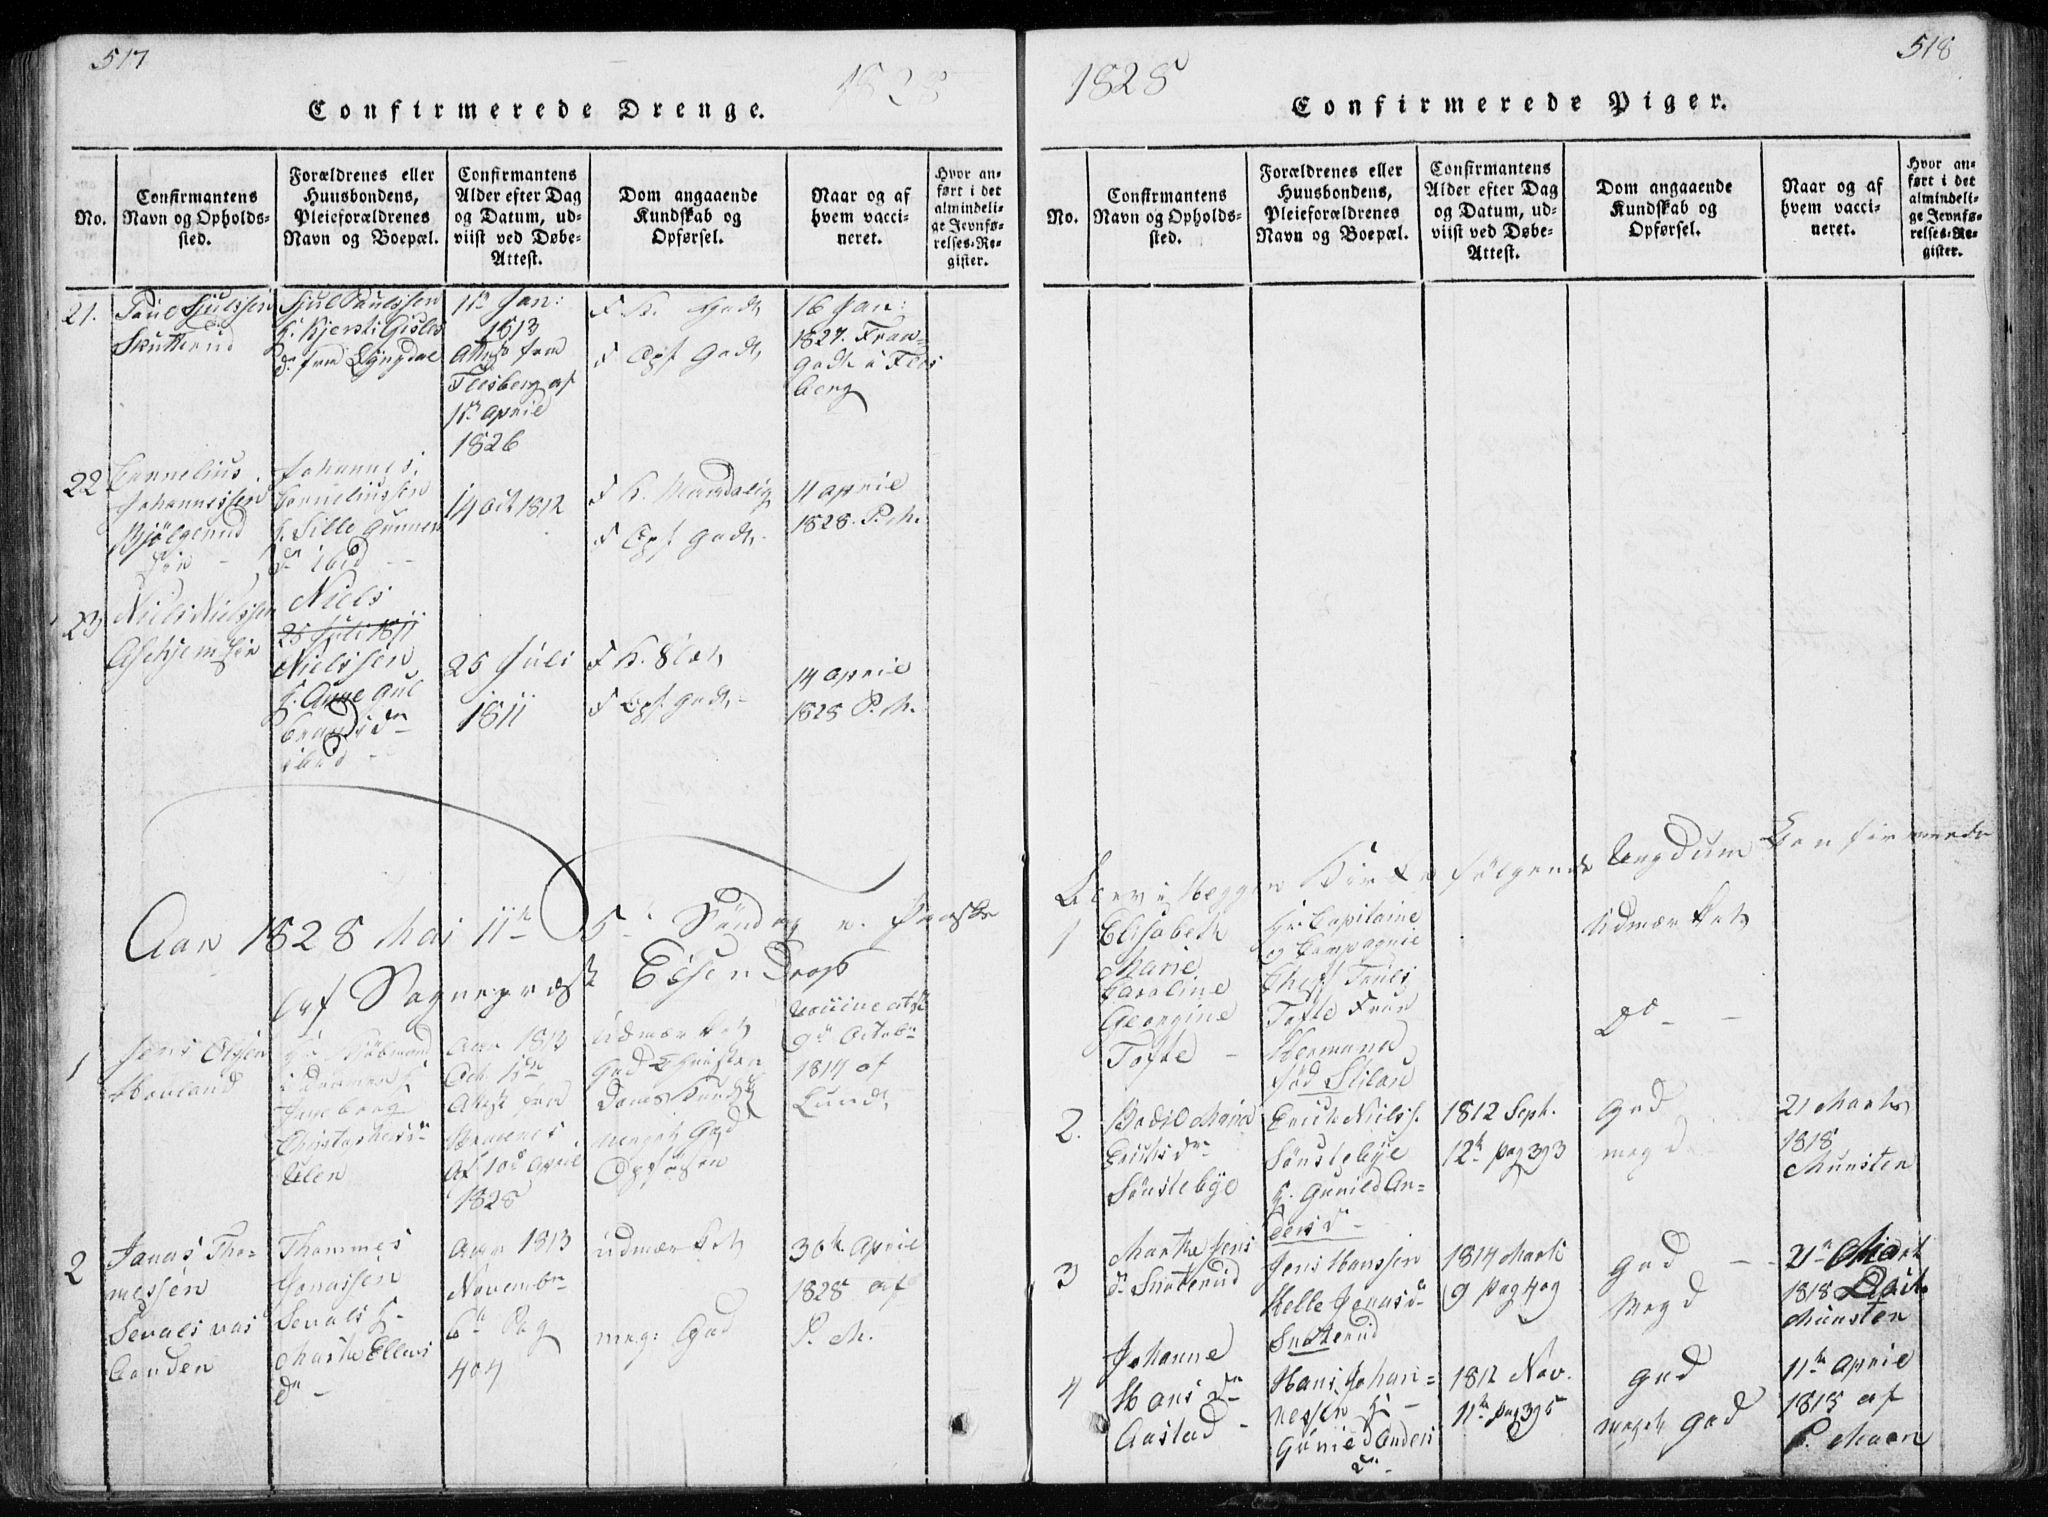 517
1828
Confirmerede Drenge.
No.
Confirmantens
Navn og Opholds-
sted.
Forældrenes eller
Huusbondens,
Pleieforældrenes
Navn og Boepæl.
Confirmantens
Alder efter Dag
og Datum, ud-
viist ved Døbe-
Attest.
Dom angaaende
Kundskab og
Opførsel.
Naar og af
hvem vacci-
neret.
Hvor an-
ført i det
almindeli-
ge Jevnfø-
relses-Re-
gister.
21.
Paul Sjulssen
Skutterud
Sjul Paulssen
Kjersti Gisles
dr fra Lyngdal
Jan:
1813
Attest fra
Flesberg af
april
1826
F K. Godt
F Opf Godt
16 Jan:
1827. Fran
Godt i Fles
berg
22
Cornelius
Johannessen
Bjölgerud
Johannes
Corneliussen
H. Sille Gunners
dr ibid
14 oct 1812
F K. Maadelig
F Opf Godt
11 april
1828. P. M.
23
Niels Nielssen
Askjem
Niels
25 Juli 1811
Nielssen
H. Anne Gul
brandsdr
ibid
25 Juli
1811
F K. Slet
F Opf. godt
14 april
1828 P. M.
Aar 1828 Mai 11te 5te Söndag e. Paaske
af Sognepræst Essendrop
1
Jens Olsen
Hovland
Ingeborg
Christophersdr
Ulen
Aar 1813
Oct.
Attest fra
Af 10de April
1828
udmærket
God Christen
doms Kundsk
meget God
Opførsen
Vaccine atst
9de Octobr
1814 af
Lund
2
Jonas Tho-
messen
Sevals
Thommes
Jonassen
Sevals
Marthe Ellens
dr
Aar 1813
Novembr
6te Pag
404
udmærket
meg: God
30te April
1828 af
P. M.
518
1828
Confirmerede Piger.
No.
Confirmantens
Navn og Opholds-
sted.
Forældrenes eller
Huusbondens,
Pleieforældrenes
Navn og Boepæl.
Confirmantens
Alder efter Dag
og Datum, ud-
viist ved Døbe-
Attest.
Dom angaaende
Kundskab og
Opførsel.
Naar og af
hvem vacci-
neret.
Hvor an-
ført i det
almindeli-
ge Jevnfø-
relses-Re-
gister.
Blev i Heggen Kirke følgende Ungdum Confirmerede
1
Elisabeth
Marie
Caroline
Georgine
Tofte
Hr. Capitaine
og Compagnie
Cheff Truls
Tofte Frue
Hermana
fød
udmærket
Do
2.
Bodil Maria
Erichsdr
Sönstebye
Erich Nielss.
Sönstebye
H. Gunild An-
dersdr
1812 Sept.
12te pag 393
God
meg d
21 Marts
1818
Munsten
3
Marthe Jens
dr Snoterud
Jens Hanssen
Helle Jonasdr
Snoterud
1814 Marti
9 pag 409
God
Meg d
21de Mart
1818
Munsten
4
Johanne
Hansdr
Aastad
Hans Johan-
nessen H
Gunild Anders
dr
1812 Nov.
11te pag 395
God
meget God
11te April
1815 af
P. Moon